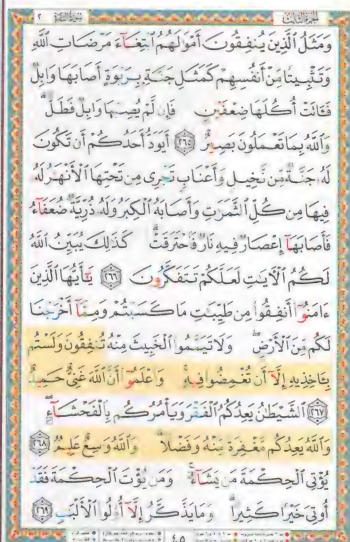 وَمَثَلُ ٱلَّذِينَ يُنفِقُونَ أَمْوَٰلَهُمُ ٱبْتِغَآءَ مَرْضَاتِ ٱللَّهِ
وَتَثْبِيتًا مِّنْ أَنفُسِهِمْ كَمَثَلِ جَنَّةٍۭ بِرَبْوَةٍ أَصَابَهَا وَابِلٌ
فَـَٔاتَتْ أُكُلَهَا ضِعْفَيْنِ فَإِن لَّمْ يُصِبْهَا وَابِلٌ فَطَلٌّ ۗ
وَٱللَّهُ بِمَا تَعْمَلُونَ بَصِيرٌ ٢٦٥ أَيَوَدُّ أَحَدُكُمْ أَن تَكُونَ
لَهُۥ جَنَّةٌ مِّن نَّخِيلٍ وَأَعْنَابٍ تَجْرِى مِن تَحْتِهَا ٱلْأَنْهَٰرُ لَهُۥ
فِيهَا مِن كُلِّ ٱلثَّمَرَٰتِ وَأَصَابَهُ ٱلْكِبَرُ وَلَهُۥ ذُرِّيَّةٌ ضُعَفَآءُ
فَأَصَابَهَآ إِعْصَارٌ فِيهِ نَارٌ فَٱحْتَرَقَتْ ۗ كَذَٰلِكَ يُبَيِّنُ ٱللَّهُ
لَكُمُ ٱلْـَٔايَٰتِ لَعَلَّكُمْ تَتَفَكَّرُونَ ٢٦٦ يَٰٓأَيُّهَا ٱلَّذِينَ
ءَامَنُوٓا۟ أَنفِقُوا۟ مِن طَيِّبَٰتِ مَا كَسَبْتُمْ وَمِمَّآ أَخْرَجْنَا
لَكُم مِّنَ ٱلْأَرْضِ ۖ وَلَا تَيَمَّمُوا۟ ٱلْخَبِيثَ مِنْهُ تُنفِقُونَ وَلَسْتُم
بِـَٔاخِذِيهِ إِلَّآ أَن تُغْمِضُوا۟ فِيهِ ۚ وَٱعْلَمُوٓا۟ أَنَّ ٱللَّهَ غَنِىٌّ حَمِيدٌ
٢٦٧ ٱلشَّيْطَٰنُ يَعِدُكُمُ ٱلْفَقْرَ وَيَأْمُرُكُم بِٱلْفَحْشَآءِ ۖ
وَٱللَّهُ يَعِدُكُم مَّغْفِرَةً مِّنْهُ وَفَضْلًا ۗ وَٱللَّهُ وَٰسِعٌ عَلِيمٌ ٢٦٨
يُؤْتِى ٱلْحِكْمَةَ مَن يَشَآءُ ۚ وَمَن يُؤْتَ ٱلْحِكْمَةَ فَقَدْ
أُوتِىَ خَيْرًا كَثِيرًا ۗ وَمَا يَذَّكَّرُ إِلَّآ أُو۟لُوا۟ ٱلْأَلْبَٰبِ ٢٦٩
٤٥